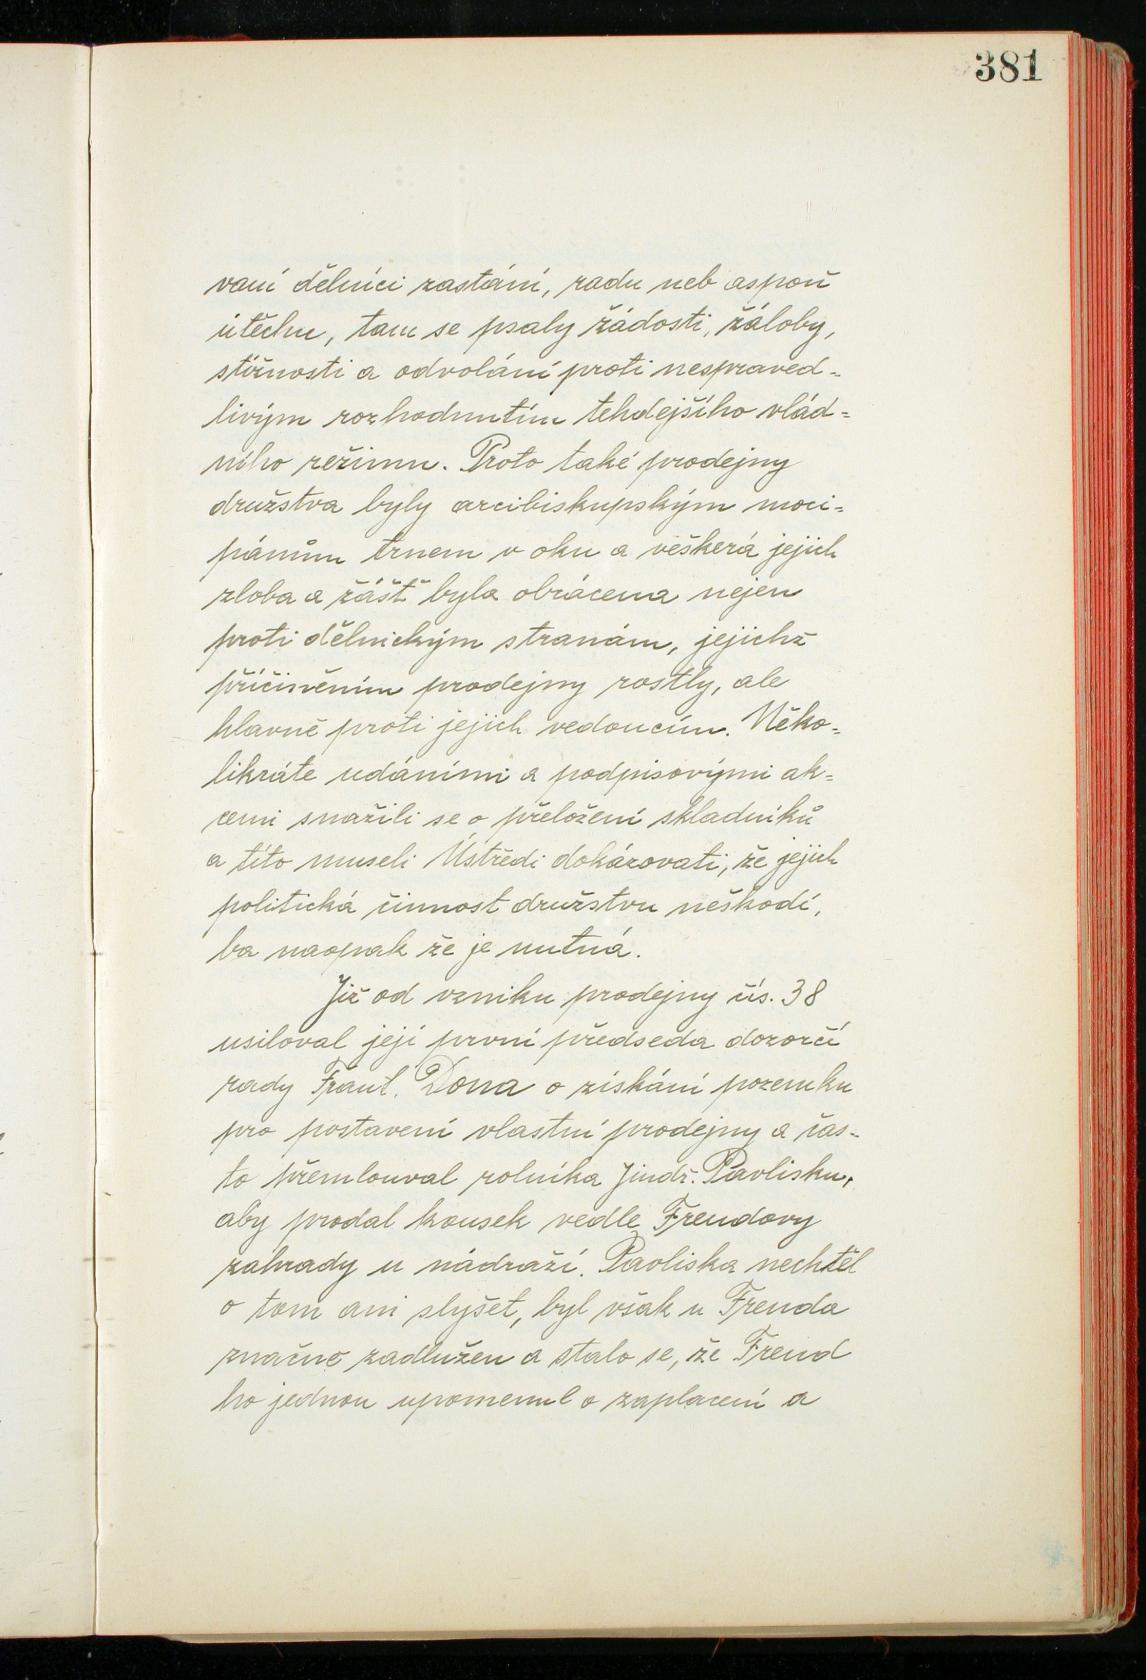 381
vaní dělníci zastání, radu neb aspoň
útěchu, tam se psaly žádosti, žáloby,
stížnosti a odvolání proti nespraved-
livým rozhodnutím tehdejšího vlád=
ního režimu. Proto také prodejny
družstva byly arcibiskupským moci=
pánům trnem v oku a veškerá jejich
zloba a zášť byla obrácena nejen
proti dělnickým stranám, jejichž
přičiněním prodejny rostly, ale
hlavně proti jejich vedoucím. Něko=
likráte udáními a podpisovými ak=
cemi snažili se o přeložení skladníků
a tito museli Ústředí dokázovati, že jejich
politická činnost družstvu neškodí,
ba naopak že je nutná.
Již od vzniku prodejny čís. 38
usiloval její první předseda dozorčí
rady Frant. Dona o získání pozemku
pro postavení vlastní prodejny a čas-
to přemlouval rolníka Jindř. Pavlisku,
aby prodal kousek vedle Freudovy
zahrady u nádraží. Pavliska nechtěl
o tom ani slyšet, byl však u Freuda
značně zadlužen a stalo se, že Freud
ho jednou upomenul o zaplacení a